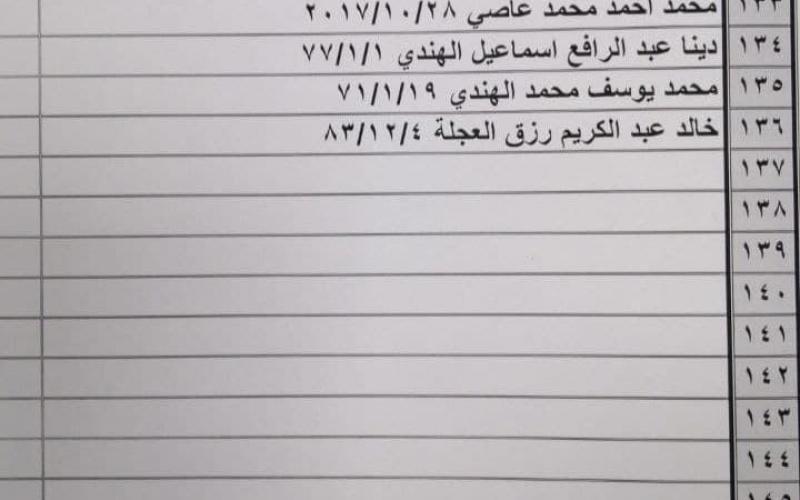 ١٣٣ محمد احمد محمد عاصي ٢٠١٧/١٠/٢٨
١٣٤ دينا عبد الرافع اسماعيل الهندي ٧٧/١/١
١٣٥ محمد يوسف محمد الهندي ٧١/١/١٩
١٣٦ خالد عبد الكريم رزق العجلة ٨٣/١٢/٤
١٣٧
١٣٨
١٣٩
١٤٠
١٤١
١٤٢
١٤٣
١٤٤